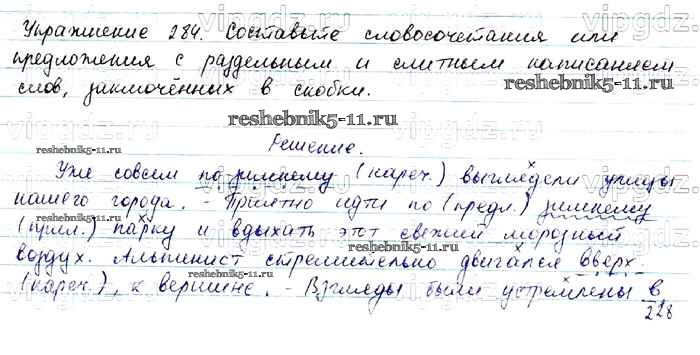 Упражнение 284. Составьте словосочетания или
предложения с раздельным и слитным написанием
слов, заключённых в скобки.
reshebnik5-11.ru
reshebnik5-11.ru
reshebnik5-11.ru
Решение.
Уже совсем по-зимнему (нареч.) выглядели улицы
нашего города. - Приятно идти по (предл.) зимнему
(прил.) парку и вдыхать этот свежий морозный
reshebnik5-11.ru
reshebnik5-11.ru
воздух. Альпинист стремительно двигался вверх
reshebnik5-11.ru
(нареч.), к вершине. - Взгляды были устремлены в
228